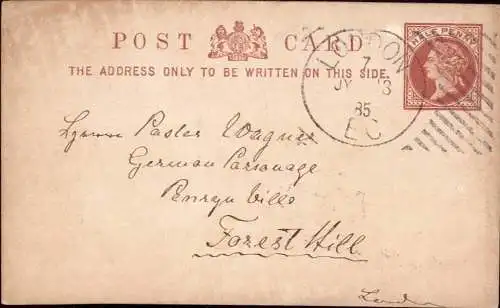 POST CARD
HALF PENNY
THE ADDRESS ONLY TO BE WRITTEN ON THIS SIDE.
LONDON
7
JY 3
85
EC
Pastor Wagner
German Parsonage
Penryn Ville
Forest Hill